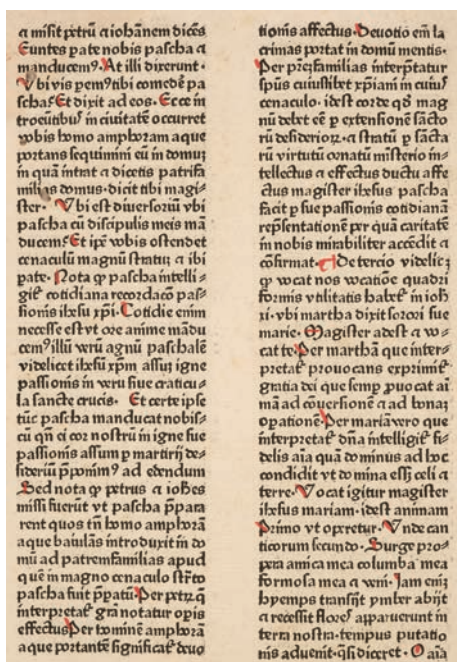 ⁊ misit petrū ⁊ iohānem dicēs
Euntes ꝑate nobis pascha ⁊
manducem⁹. At illi dixerunt.
Ubi vis pem⁹tibi comedē pa
scha? Et dixit ad eos. Ecce in
troeūtibus in ciuitatē occurret
vobis homo amphoram aque
portans sequimini eū in domuꝫ
in quā intrat ⁊ dicetis patrifa
milias domus. dicit tibi magi⸗
ster. Ubi est diuersoriū vbi
pascha cū discipulis meis mā
ducem? Et ipē vobis ostendet
cenaculū magnū stratuꝫ ⁊ ibi
ꝑate. Nota ꝙ pascha intelli⸗
git᷑ cotidiana recordacō pas⸗
sionis ihesu xp̄i. Cotidie enim
necesse est vt ore anime mādu
cem⁹ illū verū agnū paschalē
videlicet ihesū xp̄m assuꝫ igne
passionis in veru siue craticu⸗
la sancte crucis. Et certe ipse
tūc pascha manducat nobis⸗
cū qn̄ ei cor nostrū in igne sue
passionis assum ꝑ martirij de⸗
sideriū p̄ponim⁹ ad edendum
Sed nota ꝙ petrus ⁊ ioh̄es
missi fuerūt vt pascha p̄para
rent quos tn̄ homo amphorā
aque baiulās introduxit in do
mū ad patremfamilias apud
quē in magno cenaculo str̄to
pascha fuit p̄patū. Per petrꝫ q̄
interpretat᷑ grā notatur opis
effectus. Per hominē amphorā
a que portantē significat᷑ deuo
tionis affectus. Deuotio em̄ la
crimas portat in domū mentis.
Per pr̄eꝫfamilias interp̄tatur
spūs cuiuslibet xp̄iani in cuius
cenaculo. idest corde qd̄ mag
nū debet eē ꝑ extensionē sācto
rū desiderioꝝ. ⁊ stratū ꝑ sācta
rū virtutū ornatū misterio in⸗
tellectus ⁊ effectus ductu affe
ctus magister ihesus pascha
facit ꝑ sue passionis cotidianā
rep̄sentationē per quā caritatē
in nobis mirabiliter accēdit ⁊
cōfirmat. De tercio videlicꝫ
ꝙ vocat nos vocatiōe quadri
formis vtilitatis habet᷑ in ioh̄
xi. vbi martha dixit sorori sue
marie. Magister adest ⁊ vo⸗
cat te. Per marthā que inter⸗
pretat᷑ prouocans exprimit᷑
gratia dei que semꝑ ꝓuocat ai
mā ad cōuersionē ⁊ ad bonaꝫ
oꝑationē. Per mariā vero que
interpretat᷑ dn̄a intelligit᷑ fi⸗
delis aīa quā dominus ad hoc
condidit vt domina eēt celi ⁊
terre. Uocat igitur magister
ihesus mariam. idest animam
Primo vt operetur. Unde can
ticorum secundo. Surge pro⸗
ꝑera amica mea columba mea
formosa mea ⁊ veni. Jam eniꝫ
hyemps transijt ymber abijt
⁊ recessit flores apparuerunt in
terra nostra. tempus putatio
nis aduenit. qͥsi diceret. O aīa